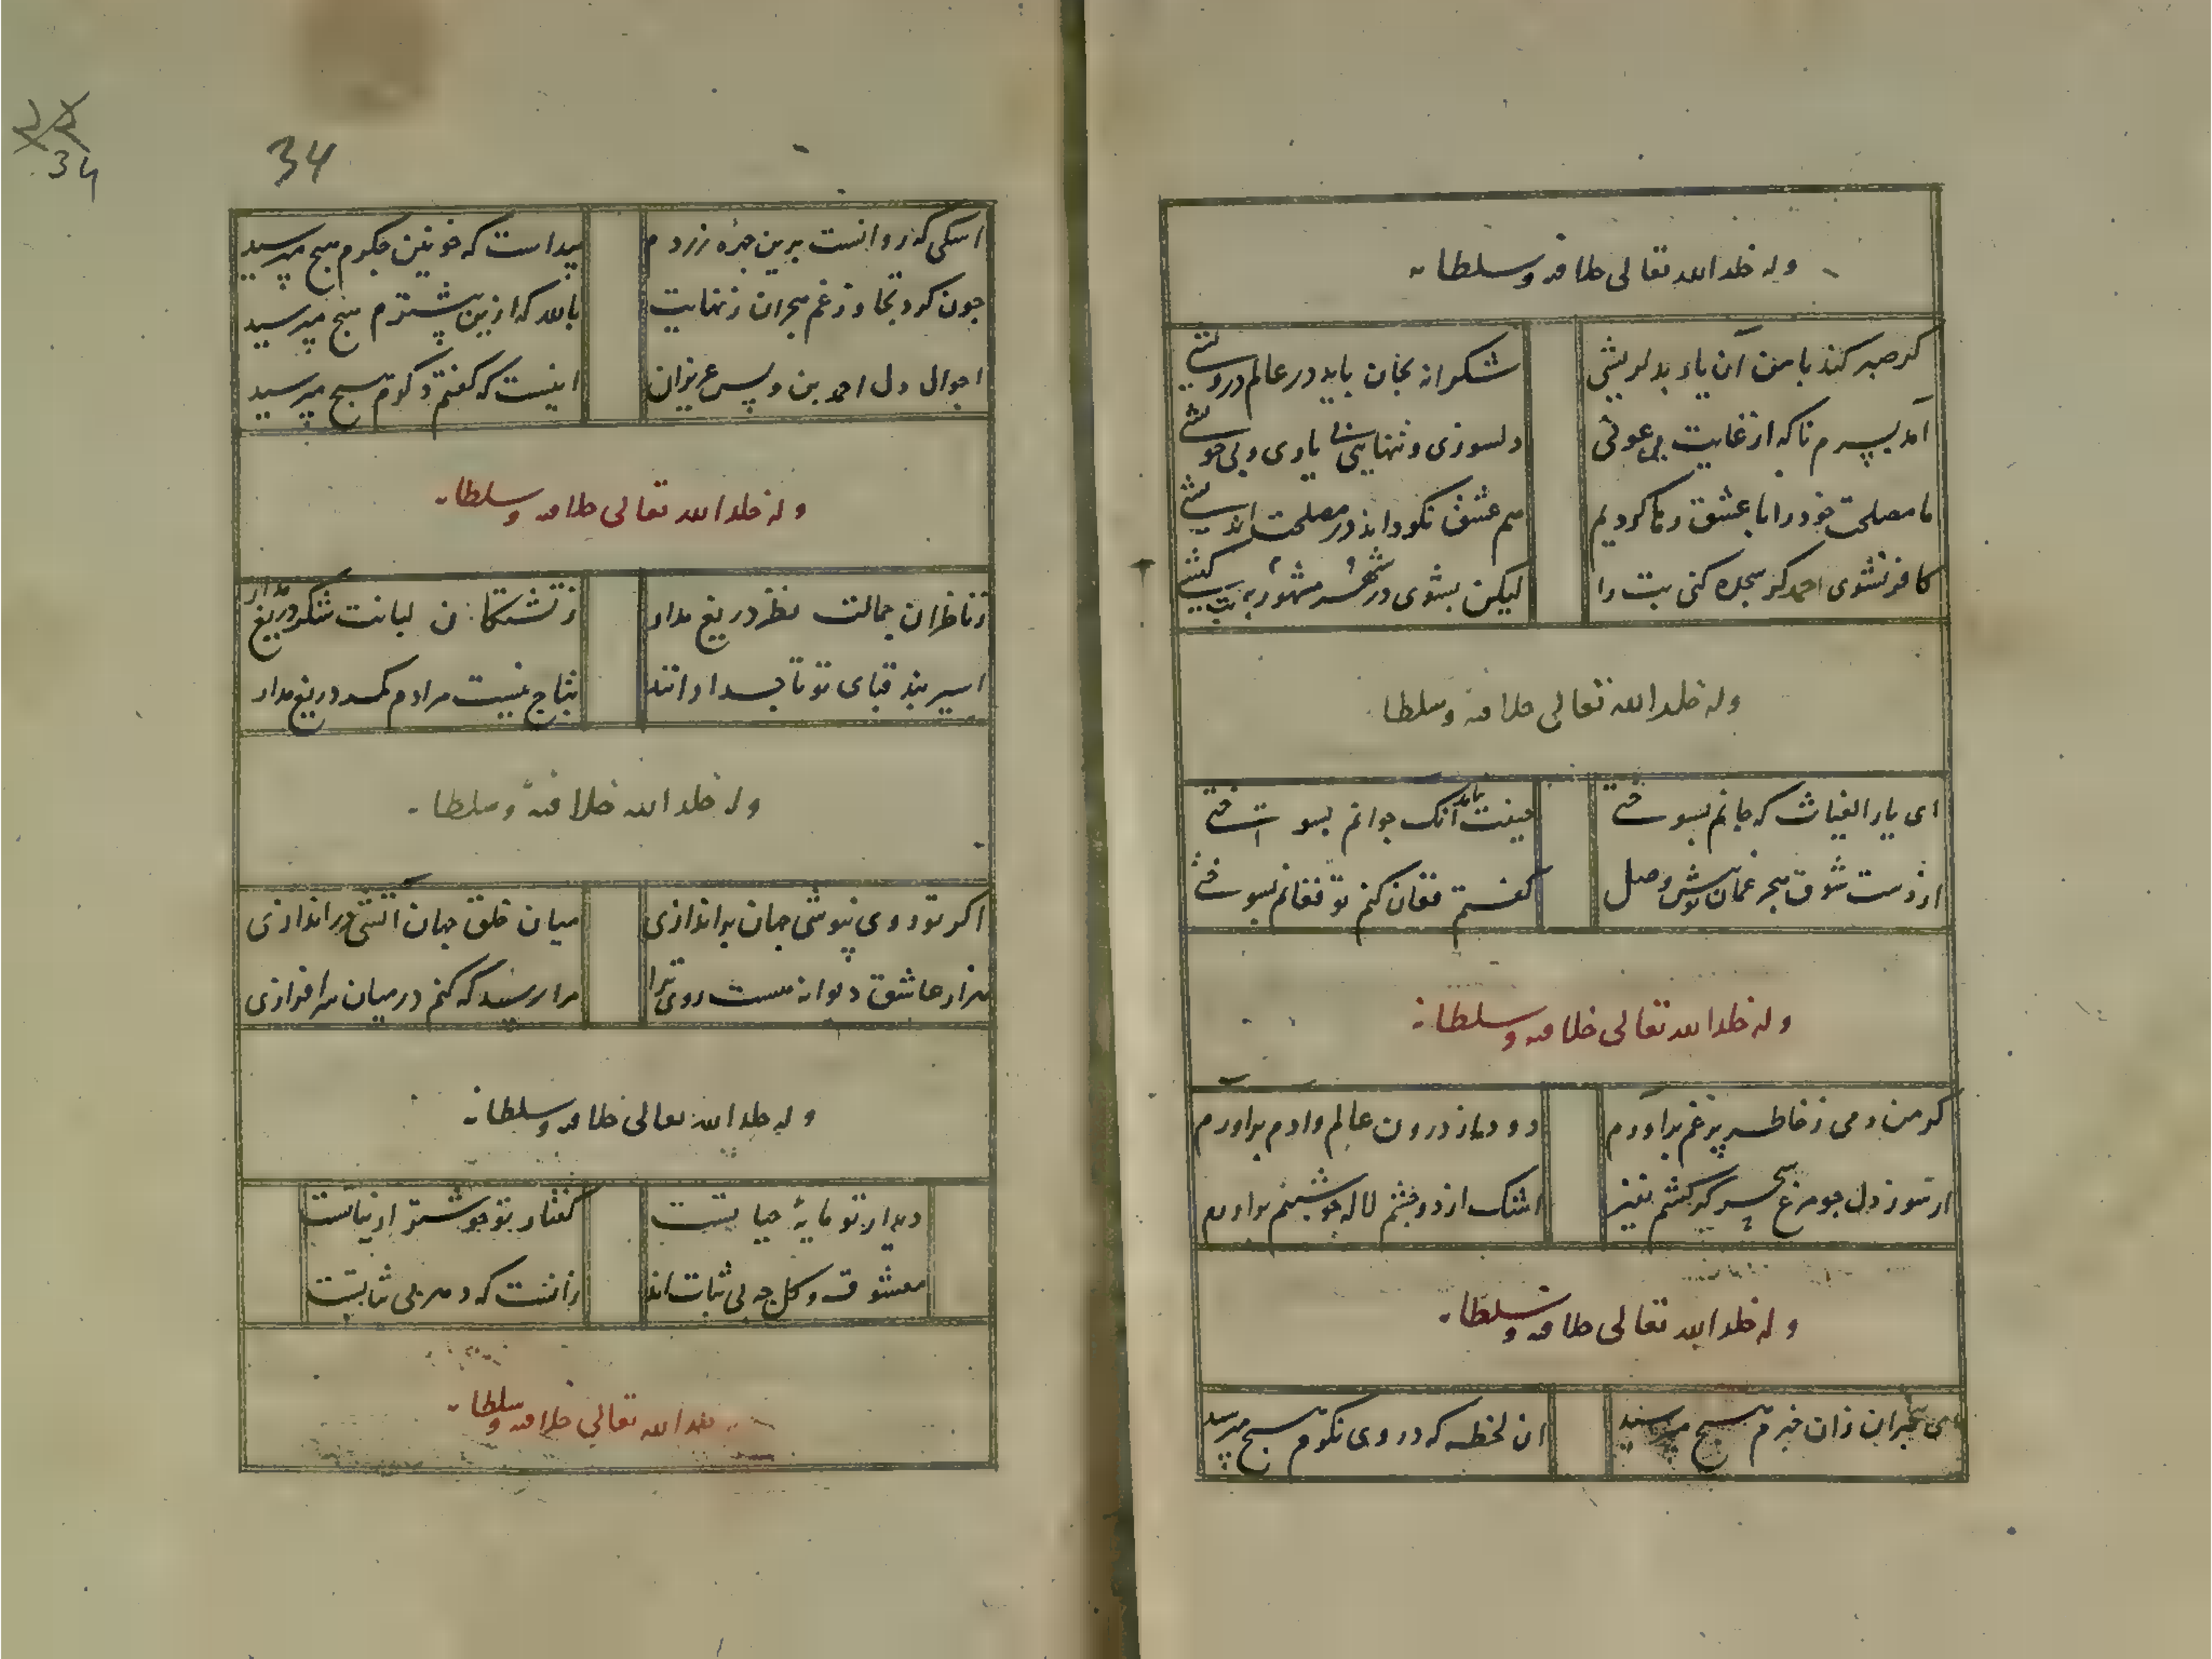 وله خلد الله تعالی خلافته وسلطانه
کر صبر کند با من آن یار بدلریشی شکرانه بجان باید در عالم درویشی
آمد بسرم ناکه از غایت بی عونی دلسوزی و تنهایی بی یاری و بی خویشی
ما مصلحت خود را با عشق رها کردیم هم عشق نکو داند در مصلحت اندیشی
کافر نشوی احمد کر سجده کنی بت را لیکن بشوی در شهر مشهور به بت کیشی
وله خلد الله تعالی خلافته وسلطانه
ای یار الغیاث که جانم بسوختی حیفت نیامد آنک جوانم بسوختی
از دست شوق هجر وصل کفتم فغان کنم تو فغانم بسوختی
وله خلد الله تعالی خلافته وسلطانه
کر من دمی ز خاطر پر غم برآورم دود از درون عالم وادم برآورم
از سوز دل جو مرغ سحر کر کشم نفیر اشک از دو چشم لاله جو شبنم برآورم
وله خلد الله تعالی خلافته وسلطانه
ای بیخبران زان خبرم هیچ مپرسید ان لحظه که در وی نکرم هیچ مپرسید
34
34
اشکی که روانست برین جهرهٔ زردم پیداست که خونین جکرم هیچ مپرسید
جون کرد تجاوز غم هجران ز نهایت بالله که ازین بیشترم هیچ مپرسید
احوال دل احمد بن ویس عزیزان اینست که کفتم دکرم هیچ مپرسید
وله خلد الله تعالی خلافته وسلطانه
ز ناظران جمالت نظر دریغ مدار ز تشنکان لبانت شکر دریغ مدار
اسیر بند قبای تو تاجدارانند بتاج نیست مرادم کمر دریغ مدار
وله خلد الله خلافته وسلطانه
اکر تو روی نپوشی جهان براندازی میان خلق جهان آتشی دراندازی
هزار عاشق دیوانه هست روی ترا مرا رسد که کنم در میان سرافرازی
وله خلد الله تعالی خلافته وسلطانه
دیدار تو مایهٔ حیاتست کفتار تو خوشتر از نباتست
معشوق و کل جه بی ثبات اند زانست که دهر بی ثباتست
خلد الله تعالی خلافته وسلطانه